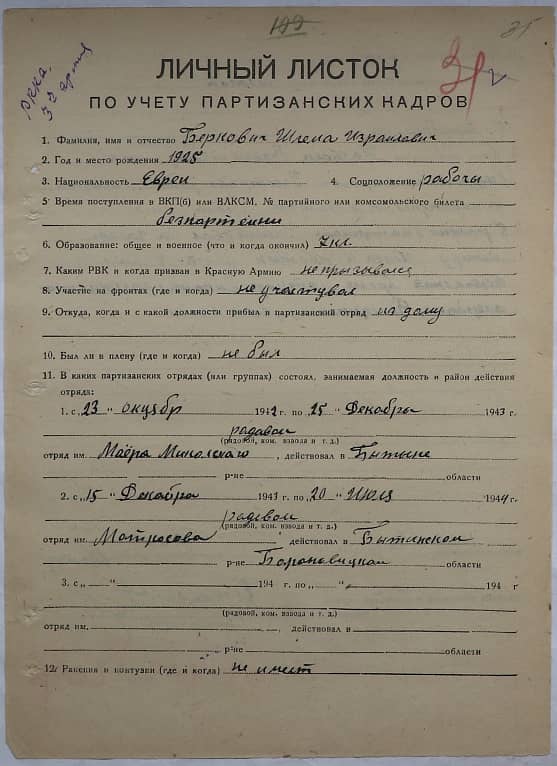 109
35
РККА.
32 армия
31
ЛИЧНЫЙ ЛИСТОК
ПО УЧЕТУ ПАРТИЗАНСКИХ КАДРОВ
1. Фамилия, имя и отчество Беркович Шлема Израилевич
2. Год и место рождения 1925
3. Национальность Евреи 4. Соцположение рабочы
5. Время поступления в ВКП(б) или ВЛКСМ, № партийного или комсомольского билета
безпартейни
6. Образование: общее и военное (что и когда окончил) 7 кл.
7. Каким РВК и когда призван в Красную Армию не призывался
8. Участие на фронтах (где и когда) не участувал
9. Откуда, когда и с какой должности прибыл в партизанский отряд из дому
10. Был ли в плену (где и когда) не был
11. В каких партизанских отрядах (или группах) состоял, занимаемая должность и район действия
отряда:
1. с „23 " октябр 1942 г. по „25 " Декабры 1943 г.
радавои
(рядовой, ком. взвода и т. д.)
отряд им. Маёра , действовал в Бытыне
р-не области
2. с „15 " Декабра 1943 г. по „20 " Июля 1944 г.
радевои
(рядовой, ком. взвода и т. д.)
отряд им. Матросова действовал в Бытинском
р-не Барановицкой
3. с „ " 194 г. по „ " 194 г
(рядовой, ком. взвода и т. д.)
отряд им. , действовал в
р-не области
12. Ранения и контузии (где и когда) не имеет